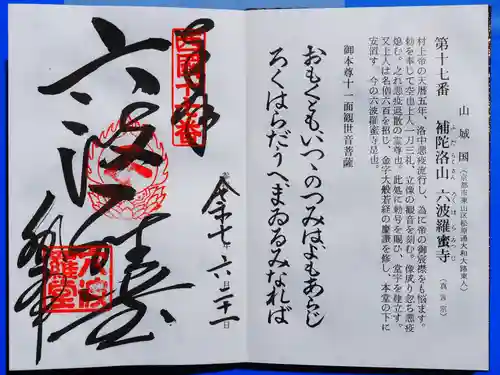 第十七番
山城国
(京都市東山区松原通大和大路東入)
補陀洛山 六波羅蜜寺
ふだらくさん ろくはらみつじ
(真言宗)
村上帝の天暦五年、洛中悪疫流行し、為に帝の御宸襟をも悩ます。
勅を奉じて空也上人一刀三礼、立像の観音を刻む。像成り忽ち悪疫
熄む。之れ悪疫退散の霊尊也。此処に勅号を賜ひ、堂宇を建立す。
又上人は名僧六百を招じ、金字大般若経の慶讃を修し、本堂の下に
安清す。今の六波羅蜜寺是也。
御本尊十一面観世音菩薩
おもくともいつゝのつみはよもあらじ
ろくはらだうへまゐるみなれば
奉拝
六波羅
令和七、六月二十一日